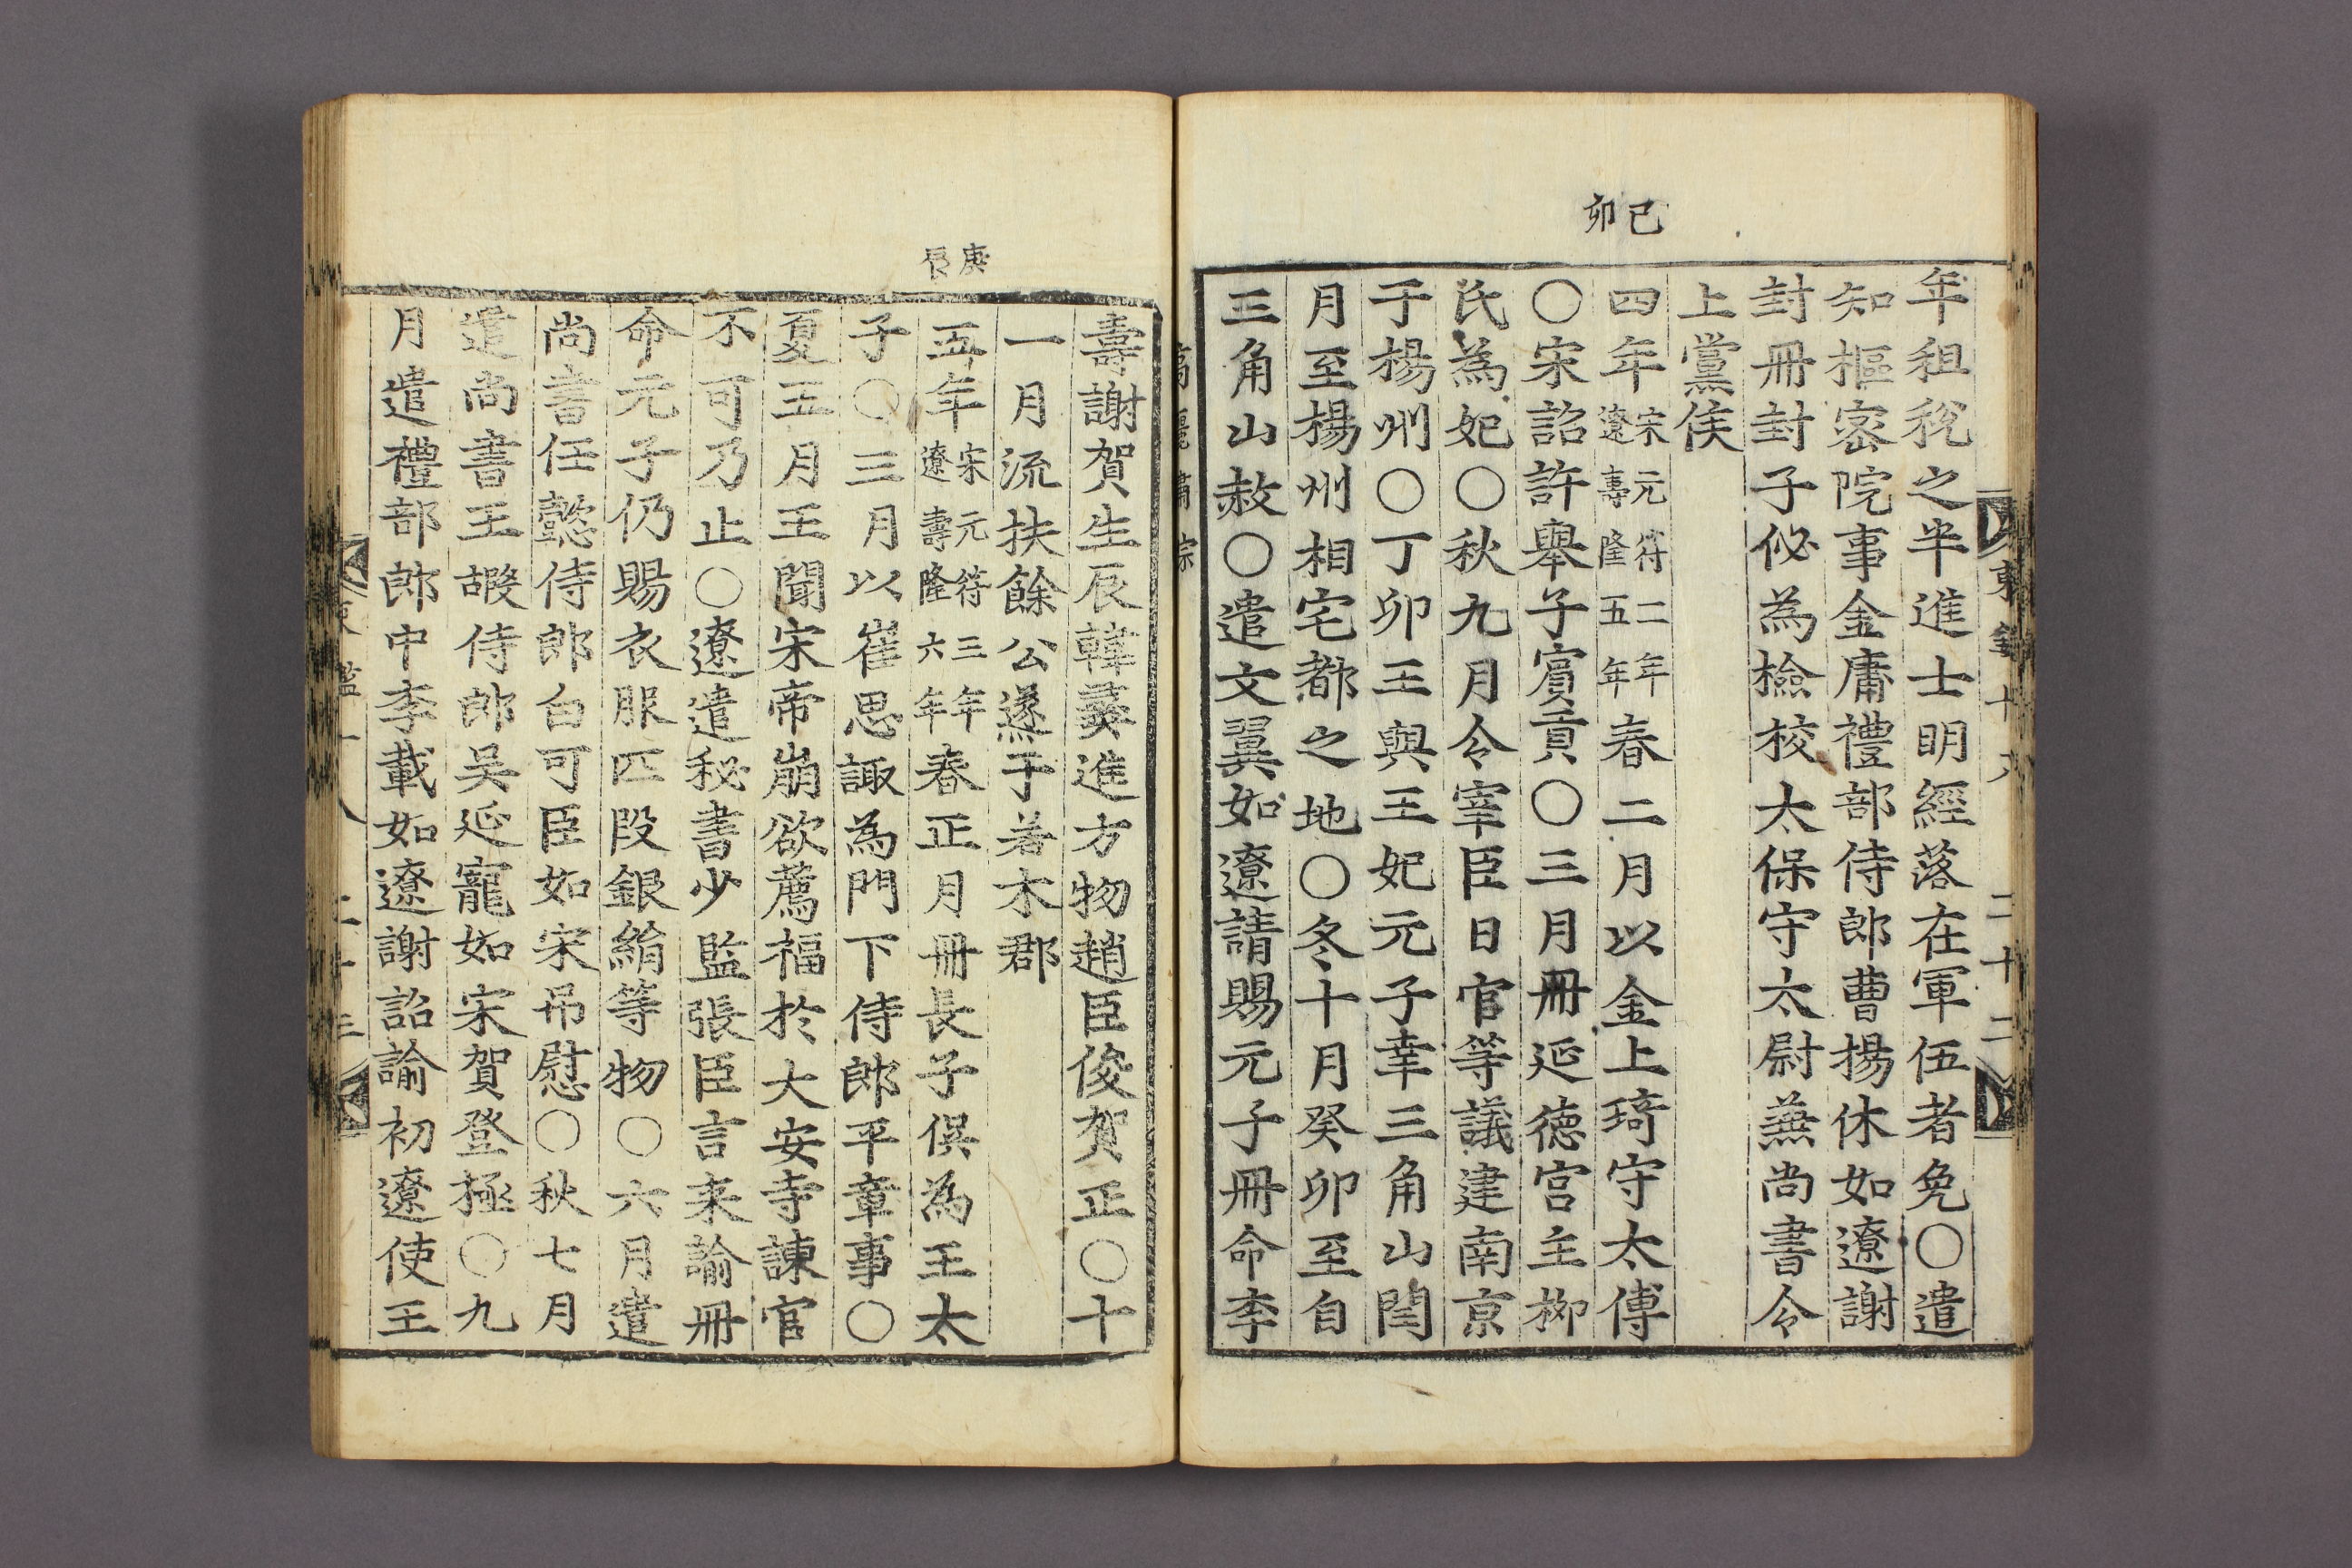 己卯
年租稅之半進士明經落在軍伍者免〇遣
知樞密院事金庸禮部侍郎曹揚休如遼謝
封冊封子佖為檢校太保守太尉兼尚書令
上黨侯
四年宋元符二年遼壽隆五年春二月以金上琦守太傅
〇宋詔許舉子賓貢〇三月冊延德宮主柳
氏為妃〇秋九月令宰臣日官等議建南京
于楊州〇丁卯王與王妃元子幸三角山閏
月至楊州相宅都之地〇冬十月癸卯至自
三角山赦〇遣文翼如遼請賜元子冊命李
高麗肅宗
庚辰
壽謝賀生辰韓彛進方物趙臣俊賀正〇十
一月流扶餘公㸂于若木郡
五年宋元符三年遼壽隆六年春正月冊長子俁為王太
子〇三月以崔思諏為門下侍郎平章事〇
夏五月王聞宋帝崩欲薦福於大安寺諫官
不可乃止〇遼遣秘書少監張臣言来諭冊
命元子仍賜衣服匹段銀絹等物〇六月遣
尚書任懿侍郎白可臣如宋吊慰〇秋七月
遣尚書王嘏侍郎吳延寵如宋賀登極〇九
月遣禮部郎中李載如遼謝詔諭初遼使王